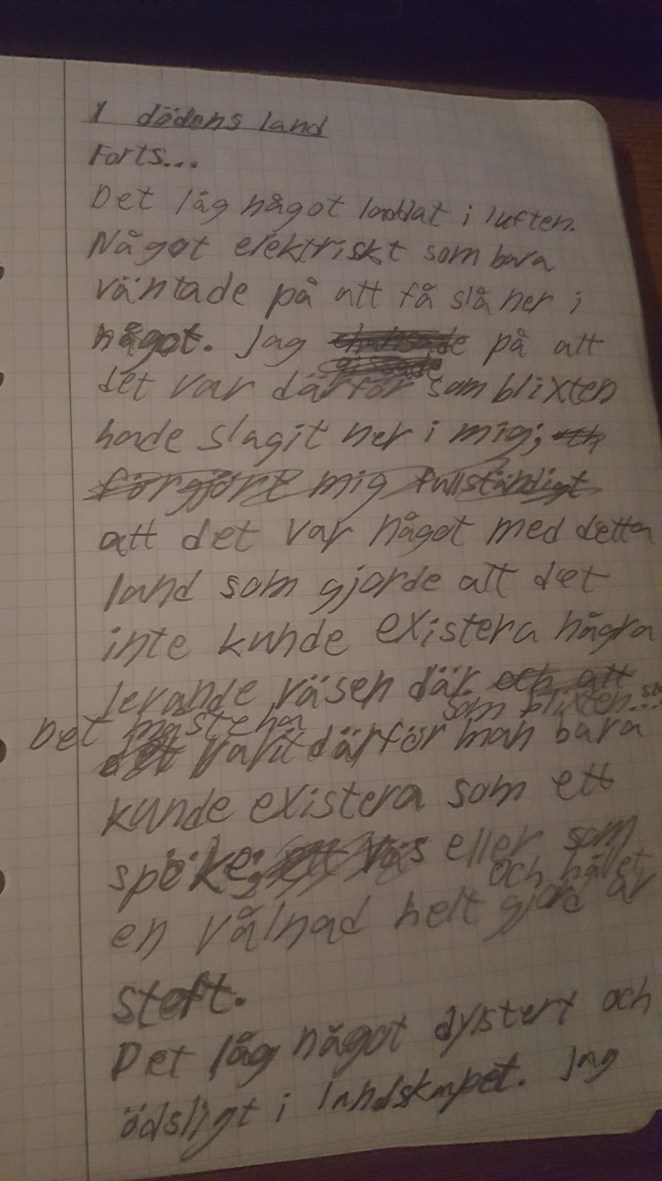 I dödens land
Forts...
Det låg något laddat i luften.
Något elektriskt som bara
väntade på att få slå ner i
något. Jag gissade på att
det var därför som blixten
hade slagit ner i mig; och
förgjort mig fullständigt
att det var något med detta
land som gjorde att det
inte kunde existera några
levande väsen där och att
som blixten...
Det måste ha
varit därför man bara
kunde existera som ett
spöke; ett eller som
och håret
en vålnad helt gjord av
stoft.
Det låg något dystert och
ödsligt i landskapet. Jag